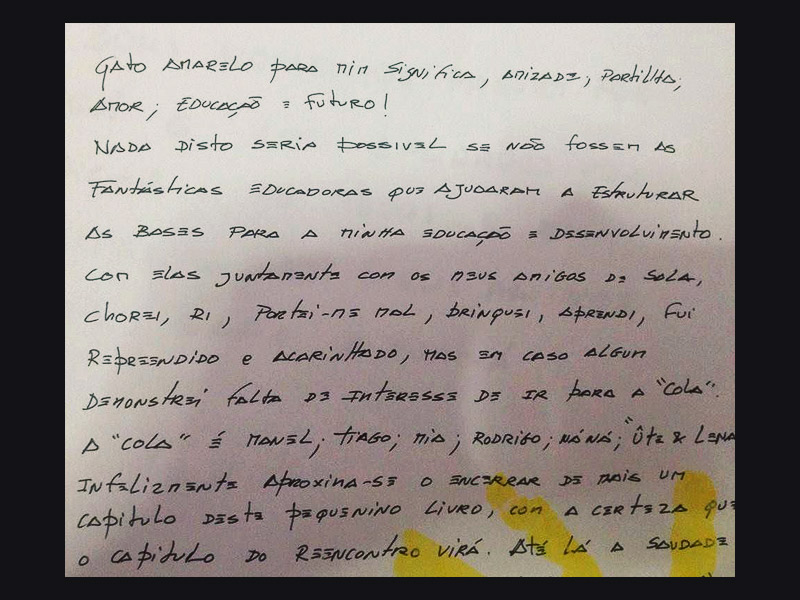 Gato Amarelo para mim significa, amizade; partilha;
amor; educação e futuro!
Nada disto seria possivel se não fossem as
fantásticas educadoras que ajudaram a estruturar
as bases para a minha educação e desenvolvimento.
Com elas juntamente com os meus amigos de sala,
chorei, ri, portei-me mal, brinquei, aprendi, fui
repreendido e acarinhado, mas em caso algum
demonstrei falta de interesse de ir para a "cola".
A "cola" é Manel; Tiago; Mia; Rodrigo; Náná; "Ûte & Lena
Infelizmente aproxima-se o encerrar de mais um
capitulo deste pequenino livro, com a certeza que
o capitulo do reencontro virá. Até lá a saudade